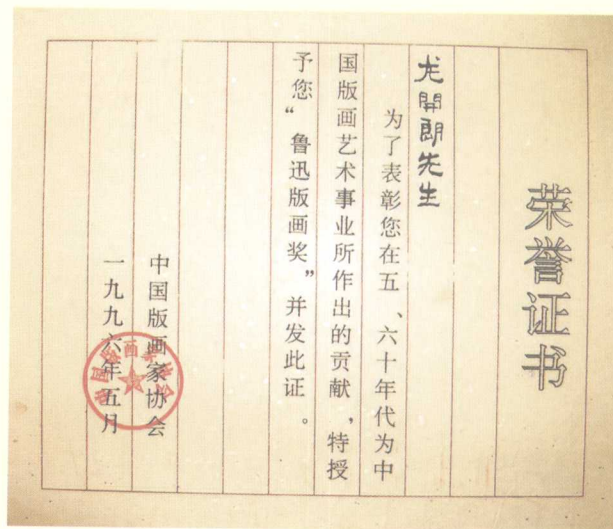 荣誉证书
龙開朗先生
为了表彰您在五、六十年代为中
国版画艺术事业所作出的贡献，特授
予您“鲁迅版画奖”并发此证。
中国版画家协会
一九九六年五月
中国版画家协会